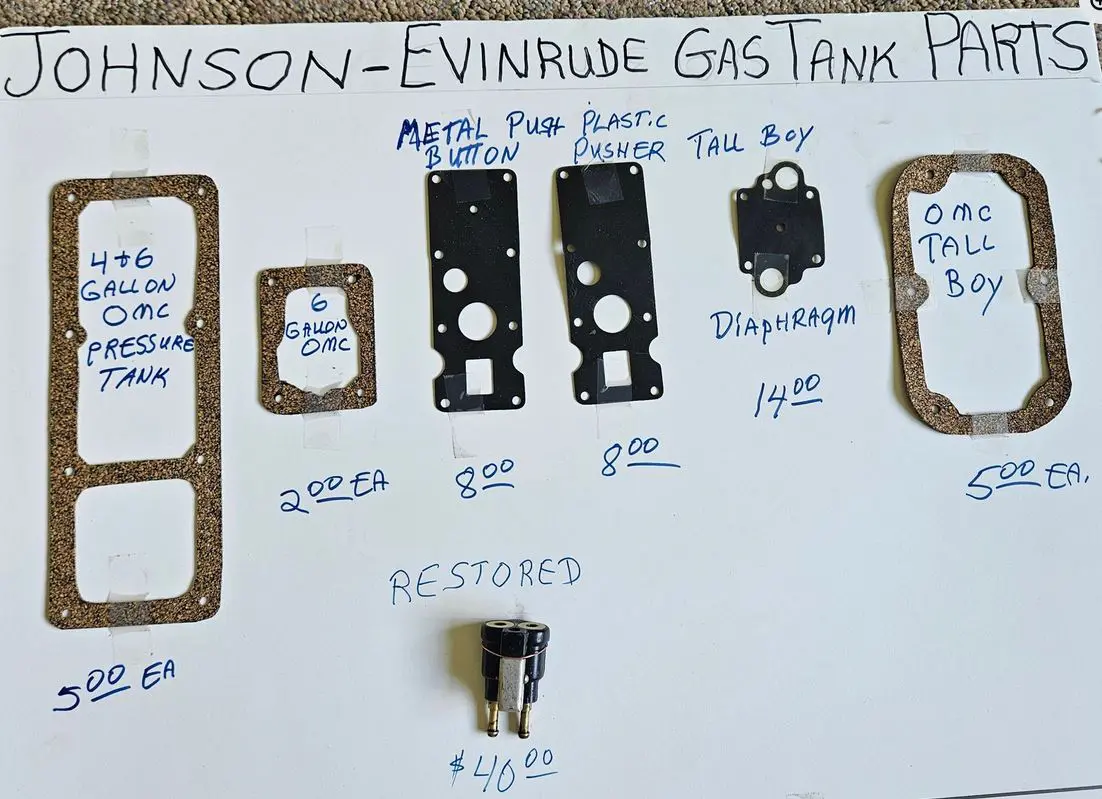 JOHNSON-EVINRUDE GAS TANK PARTS
METAL PUSH
BUTTON
PLASTIC
PUSHER
TALL BOY
4+6
GALLON
OMC
PRESSURE
TANK
6
GALLON
OMC
OMC
TALL
BOY
DIAPHRAGM
14 00
2 00 EA
8 00
8 00
5 00 EA.
RESTORED
5 00 EA
$40 00